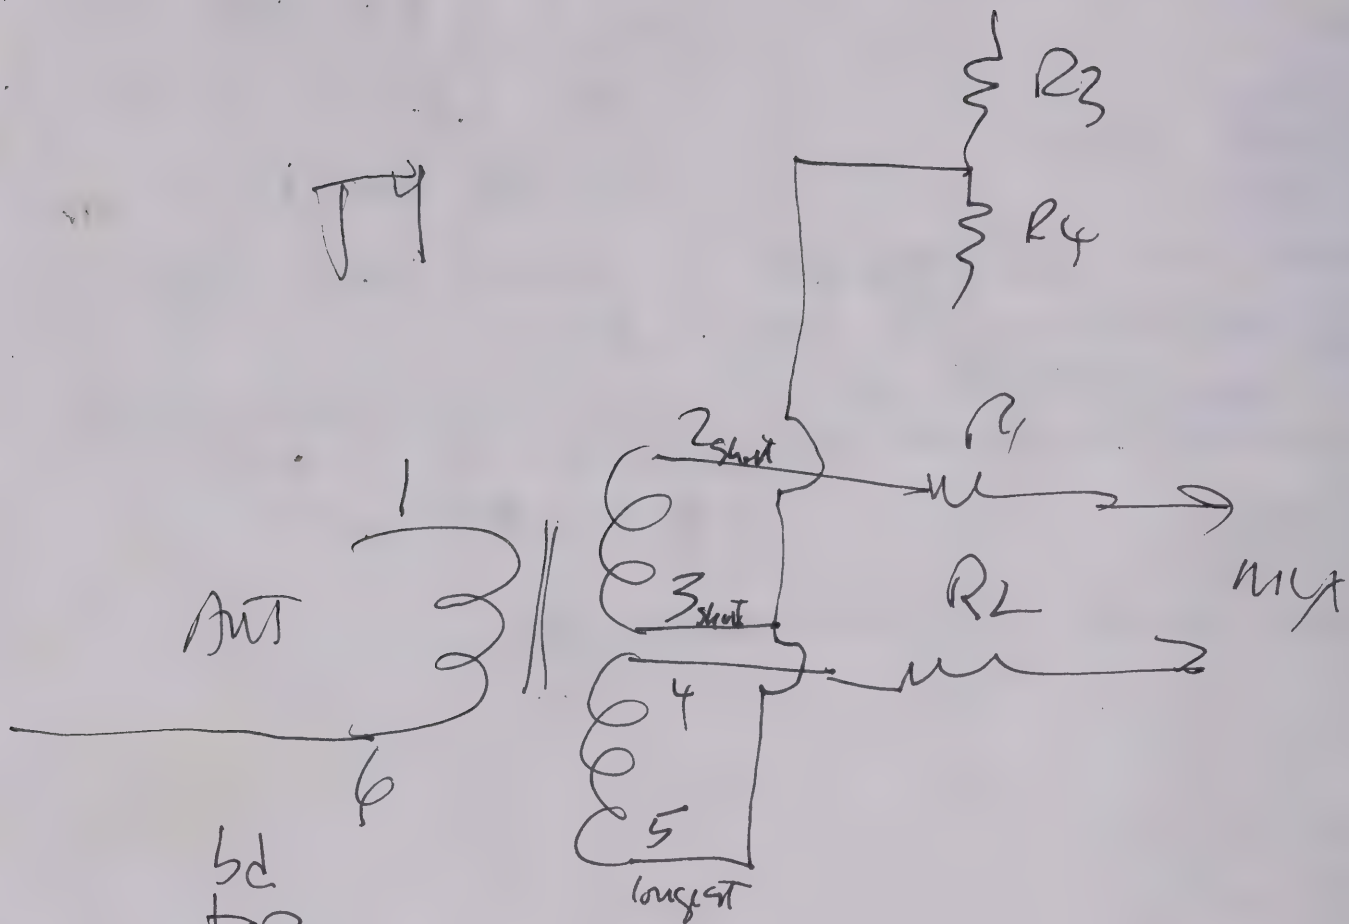 R3
R4
2 short
R1
1
3 short
R2
Ant
4
6
5
longest
bd